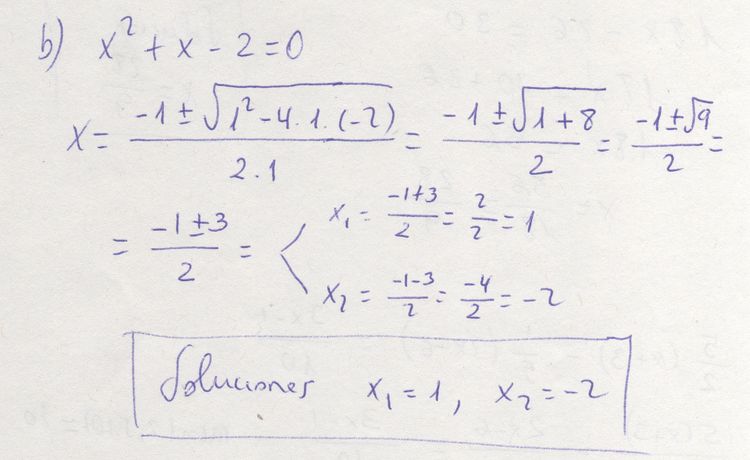 b) x² + x - 2 = 0
x = (-1 ± √(1² - 4 · 1 · (-2))) / (2 · 1) = (-1 ± √(1 + 8)) / 2 = (-1 ± √9) / 2 =
= (-1 ± 3) / 2 =
x₁ = (-1+3) / 2 = 2/2 = 1
x₂ = (-1-3) / 2 = -4/2 = -2
Soluciones x₁ = 1, x₂ = -2